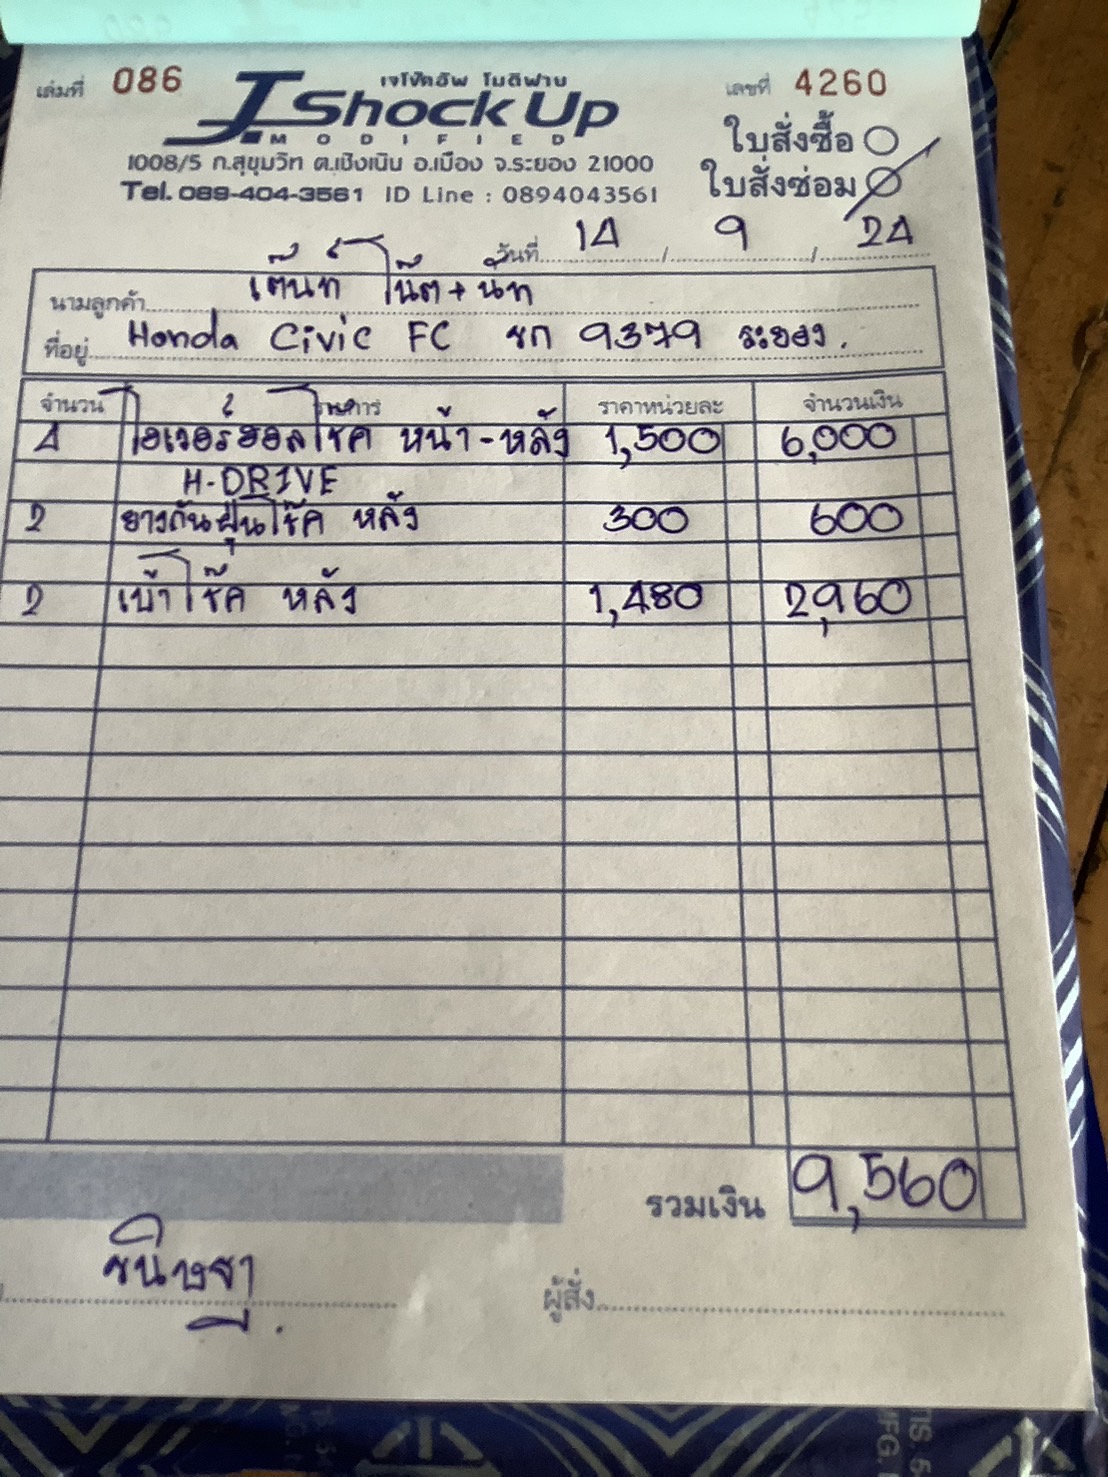 เล่มที่ 086
เจโช๊คอัพ โมดิฟาย
J. Shock Up
MODIFIED
เลขที่ 4260
ใบสั่งซื้อ
ใบสั่งซ่อม
1008/5 ถ.สุขุมวิท ต.เชิงเนิน อ.เมือง จ.ระยอง 21000
Tel. 089-404-3561 ID Line : 0894043561
วันที่ 14 / 9 / 24
นามลูกค้า เต๊นท์ โน๊ต + นัท
ที่อยู่ Honda Civic FC ขก 9379 ระยอง.
จำนวน รายการ ราคาหน่วยละ จำนวนเงิน
4 โอเวอร์ฮอลโช๊ค หน้า-หลัง 1,500 6,000
H-DRIVE
2 ยางกันฝุ่นโช๊ค หลัง 300 600
2 เบ้าโช๊ค หลัง 1,480 2,960
รวมเงิน 9,560
ผู้สั่ง